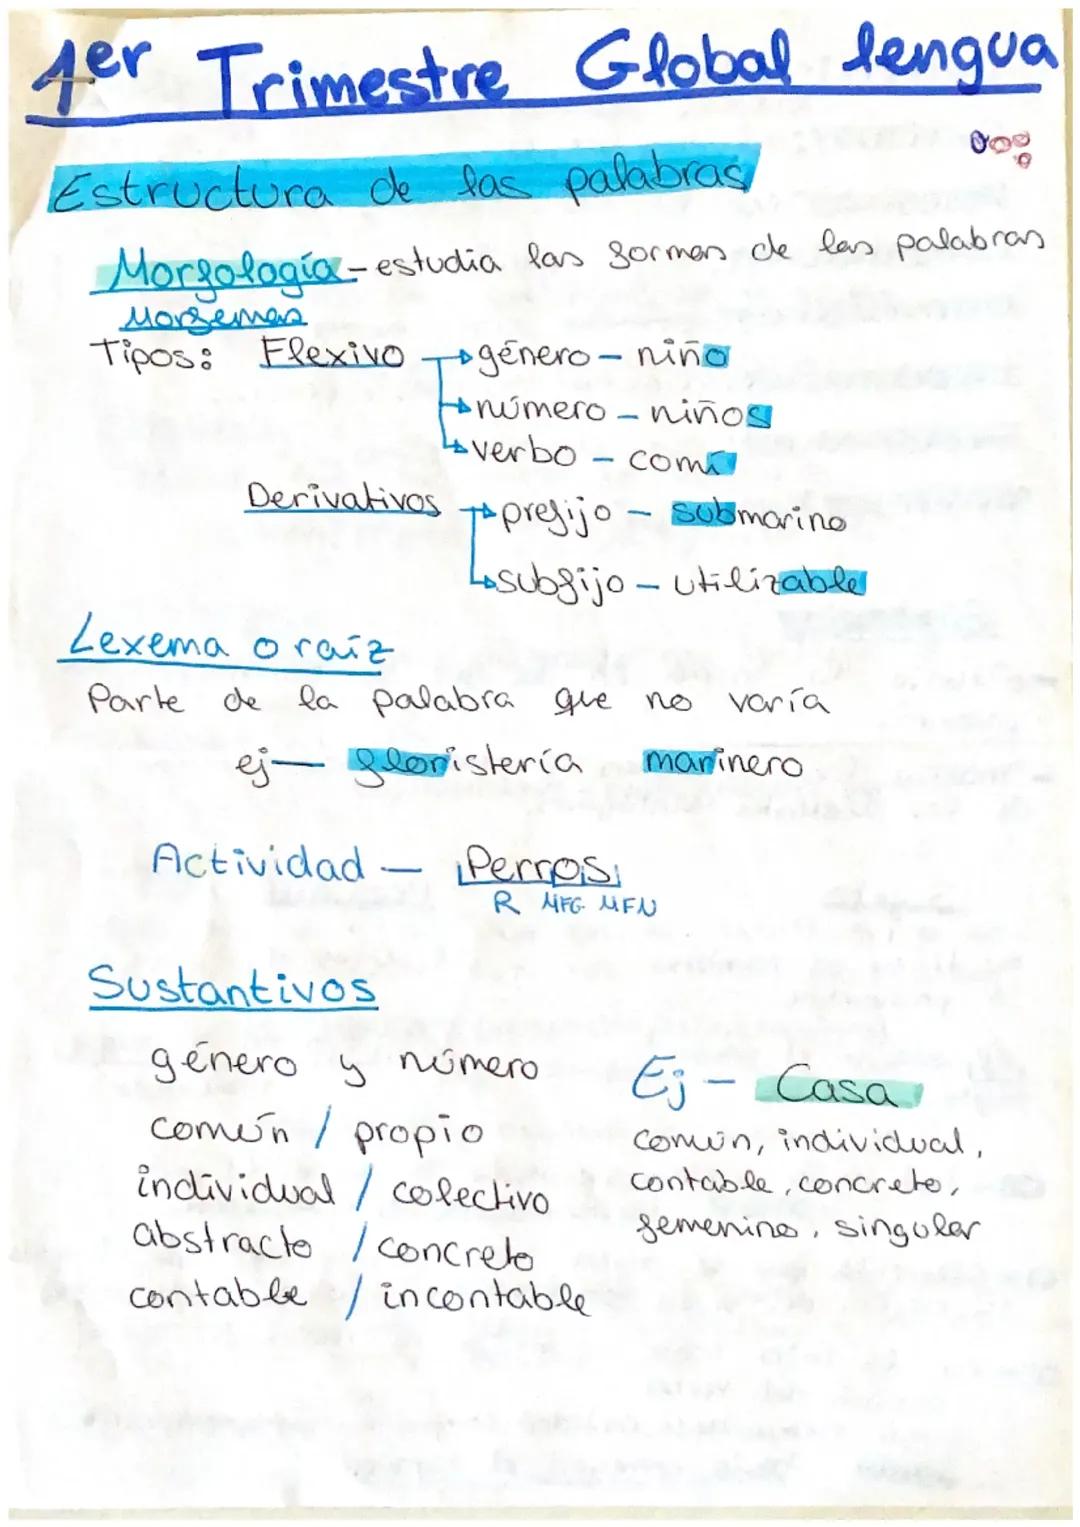 1er Trimestre Global lengua
Estructura de las palabras
Morfología - estudia las formas de las palabras
Morfemas
Tipos: Flexivo → género - niño
→ número - niños
→ verbo - comí
Derivativos → prefijo - submarino
→ subfijo - utilizable
Lexema o raíz
Parte de la palabra que no varía
ej - floristería marinero
Actividad - Perros
R MFG MFN
Sustantivos
género y número
común / propio
individual / colectivo
abstracto / concreto
contable / incontable
Ej - Casa
común, individual,
contable, concreto,
femenino, singular